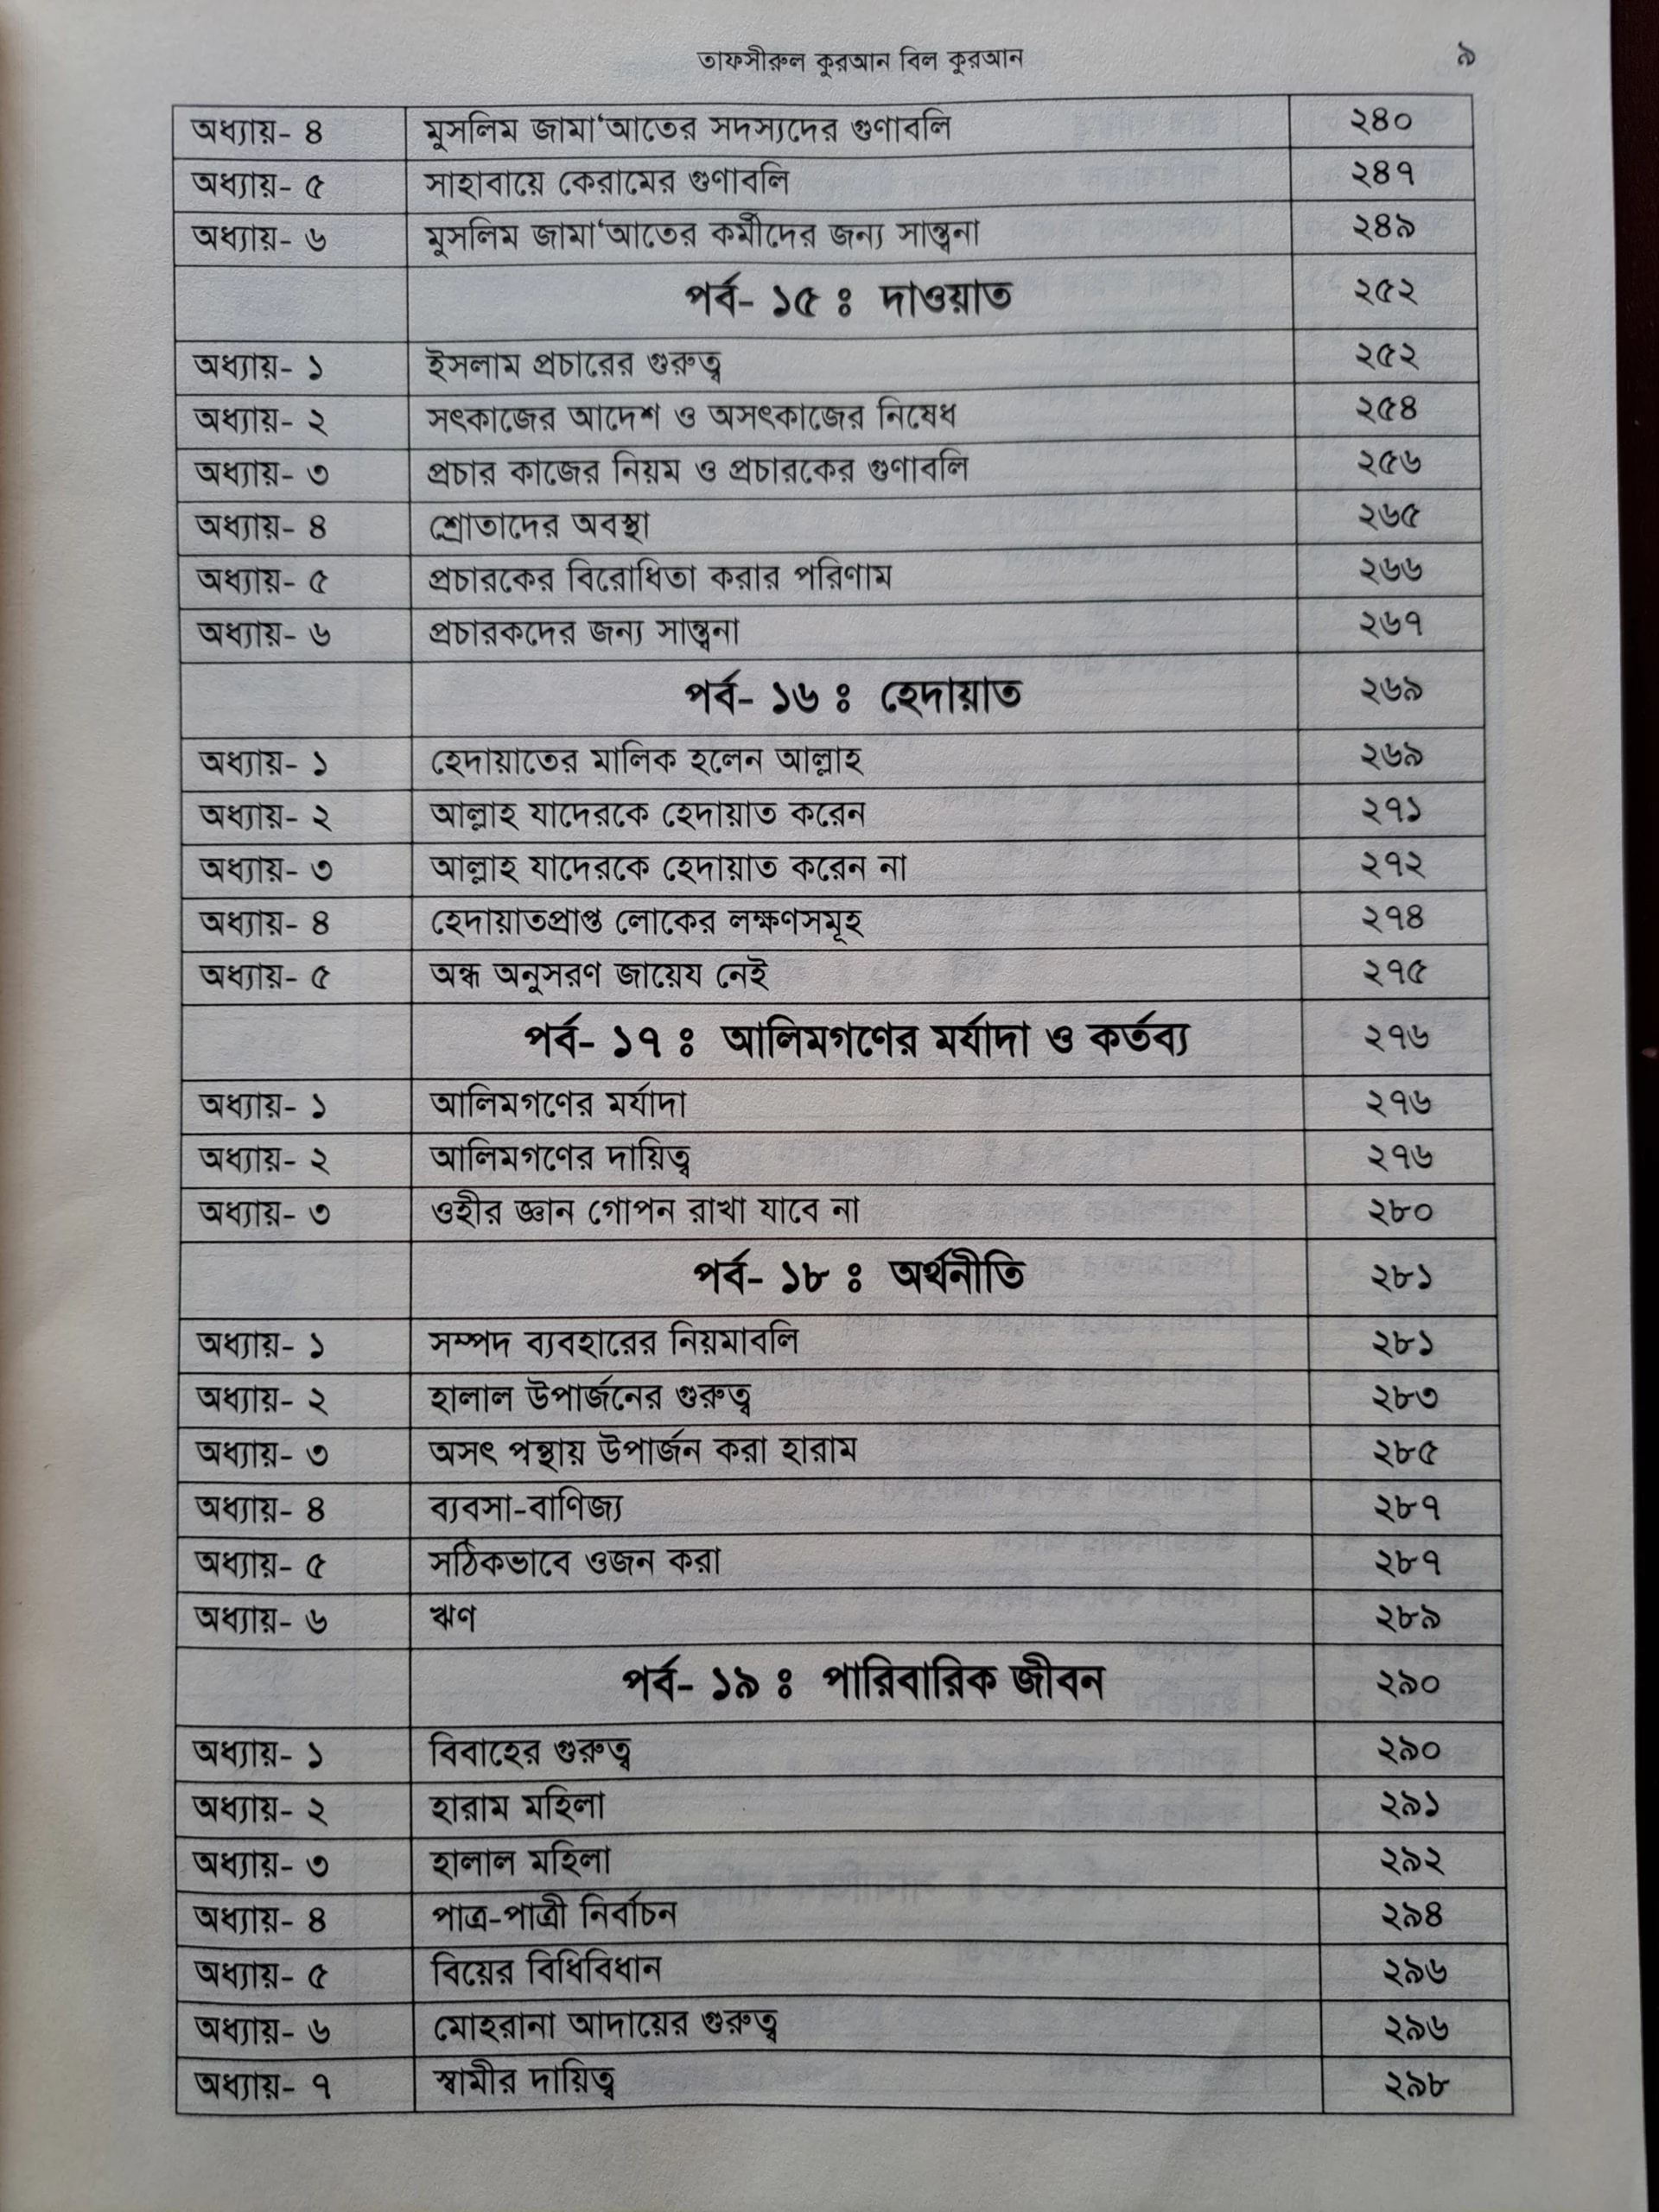 তাফসীরুল কুরআন বিল কুরআন ৯
অধ্যায়- ৪ মুসলিম জামা‘আতের সদস্যদের গুণাবলি ২৪০
অধ্যায়- ৫ সাহাবায়ে কেরামের গুণাবলি ২৪৭
অধ্যায়- ৬ মুসলিম জামা‘আতের কর্মীদের জন্য সান্ত্বনা ২৪৯
পর্ব- ১৫ ঃ দাওয়াত ২৫২
অধ্যায়- ১ ইসলাম প্রচারের গুরুত্ব ২৫২
অধ্যায়- ২ সৎকাজের আদেশ ও অসৎকাজের নিষেধ ২৫৪
অধ্যায়- ৩ প্রচার কাজের নিয়ম ও প্রচারকের গুণাবলি ২৫৬
অধ্যায়- ৪ শ্রোতাদের অবস্থা ২৬৫
অধ্যায়- ৫ প্রচারকের বিরোধিতা করার পরিণাম ২৬৬
অধ্যায়- ৬ প্রচারকদের জন্য সান্ত্বনা ২৬৭
পর্ব- ১৬ ঃ হেদায়াত ২৬৯
অধ্যায়- ১ হেদায়াতের মালিক হলেন আল্লাহ ২৬৯
অধ্যায়- ২ আল্লাহ যাদেরকে হেদায়াত করেন ২৭১
অধ্যায়- ৩ আল্লাহ যাদেরকে হেদায়াত করেন না ২৭২
অধ্যায়- ৪ হেদায়াতপ্রাপ্ত লোকের লক্ষণসমূহ ২৭৪
অধ্যায়- ৫ অন্ধ অনুসরণ জায়েয নেই ২৭৫
পর্ব- ১৭ ঃ আলিমগণের মর্যাদা ও কর্তব্য ২৭৬
অধ্যায়- ১ আলিমগণের মর্যাদা ২৭৬
অধ্যায়- ২ আলিমগণের দায়িত্ব ২৭৬
অধ্যায়- ৩ ওহীর জ্ঞান গোপন রাখা যাবে না ২৮০
পর্ব- ১৮ ঃ অর্থনীতি ২৮১
অধ্যায়- ১ সম্পদ ব্যবহারের নিয়মাবলি ২৮১
অধ্যায়- ২ হালাল উপার্জনের গুরুত্ব ২৮৩
অধ্যায়- ৩ অসৎ পন্থায় উপার্জন করা হারাম ২৮৫
অধ্যায়- ৪ ব্যবসা-বাণিজ্য ২৮৭
অধ্যায়- ৫ সঠিকভাবে ওজন করা ২৮৭
অধ্যায়- ৬ ঋণ ২৮৯
পর্ব- ১৯ ঃ পারিবারিক জীবন ২৯০
অধ্যায়- ১ বিবাহের গুরুত্ব ২৯০
অধ্যায়- ২ হারাম মহিলা ২৯১
অধ্যায়- ৩ হালাল মহিলা ২৯২
অধ্যায়- ৪ পাত্র-পাত্রী নির্বাচন ২৯৪
অধ্যায়- ৫ বিয়ের বিধিবিধান ২৯৬
অধ্যায়- ৬ মোহরানা আদায়ের গুরুত্ব ২৯৬
অধ্যায়- ৭ স্বামীর দায়িত্ব ২৯৮